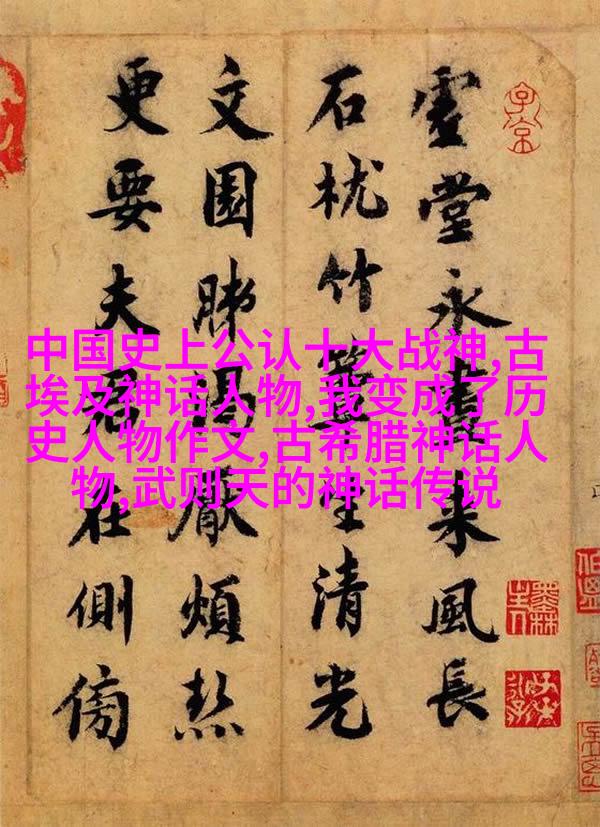 虛堂永晝來風長
石枕竹簟生清光
文園肺渴厭煩熱
更要夫君在側傍
中国史上公认十大战神,古
埃及神话人物,我变成了历
史人物作文,古希腊神话人
物,武则天的神话传说